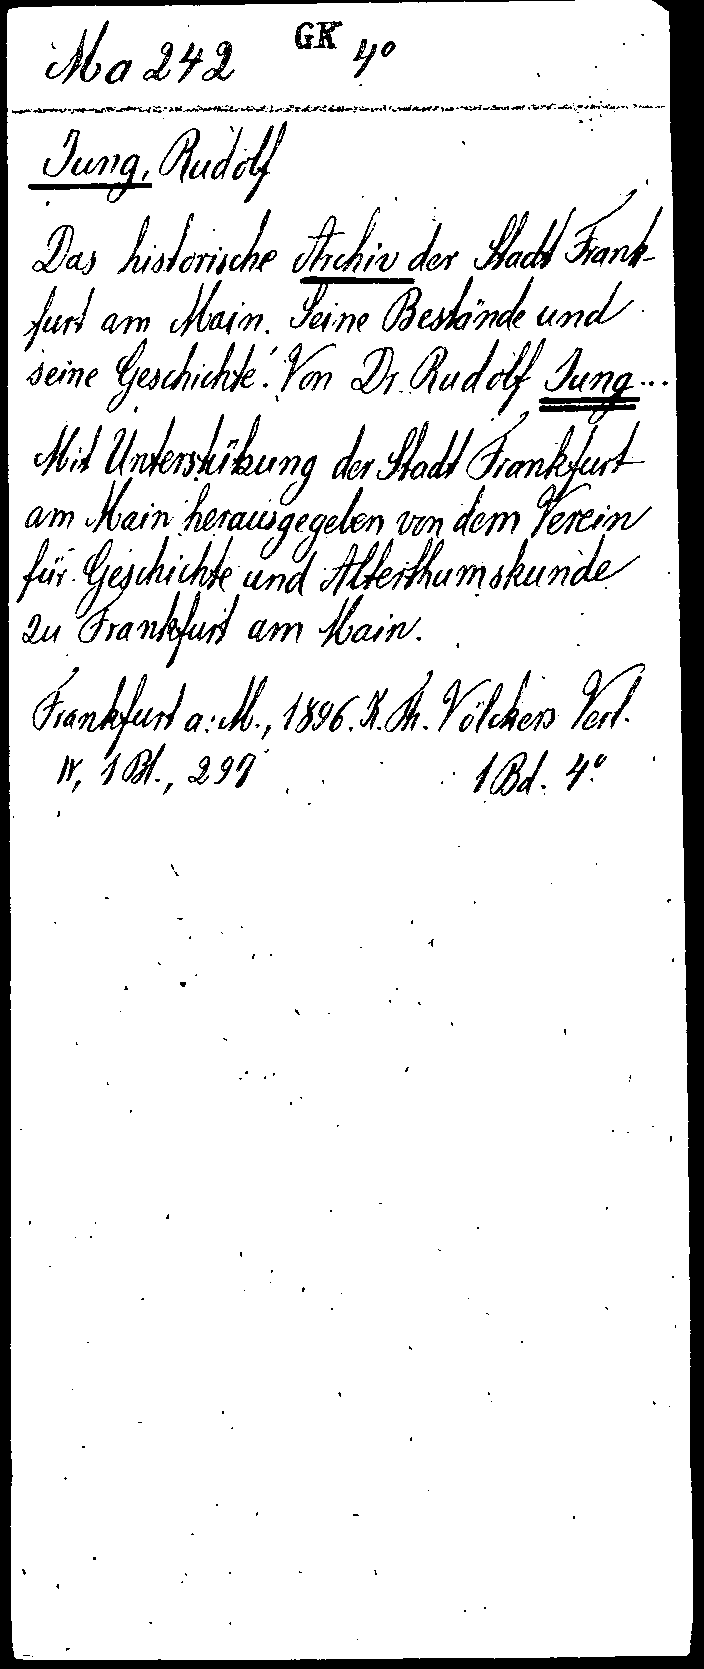 Ma 242 GK 4°
Jung, Rudolf
Das historische Archiv der Stadt Frank-
furt am Main. Seine Bestände und
seine Geschichte. Von Dr. Rudolf Jung...
Mit Unterstützung der Stadt Frankfurt
am Main herausgegeben von dem Verein
für Geschichte und Alterthumskunde
zu Frankfurt am Main.
Frankfurt a. M., 1896. K. Th. Völckers Verl.
IV, 1 Bl., 297 1 Bd. 4°